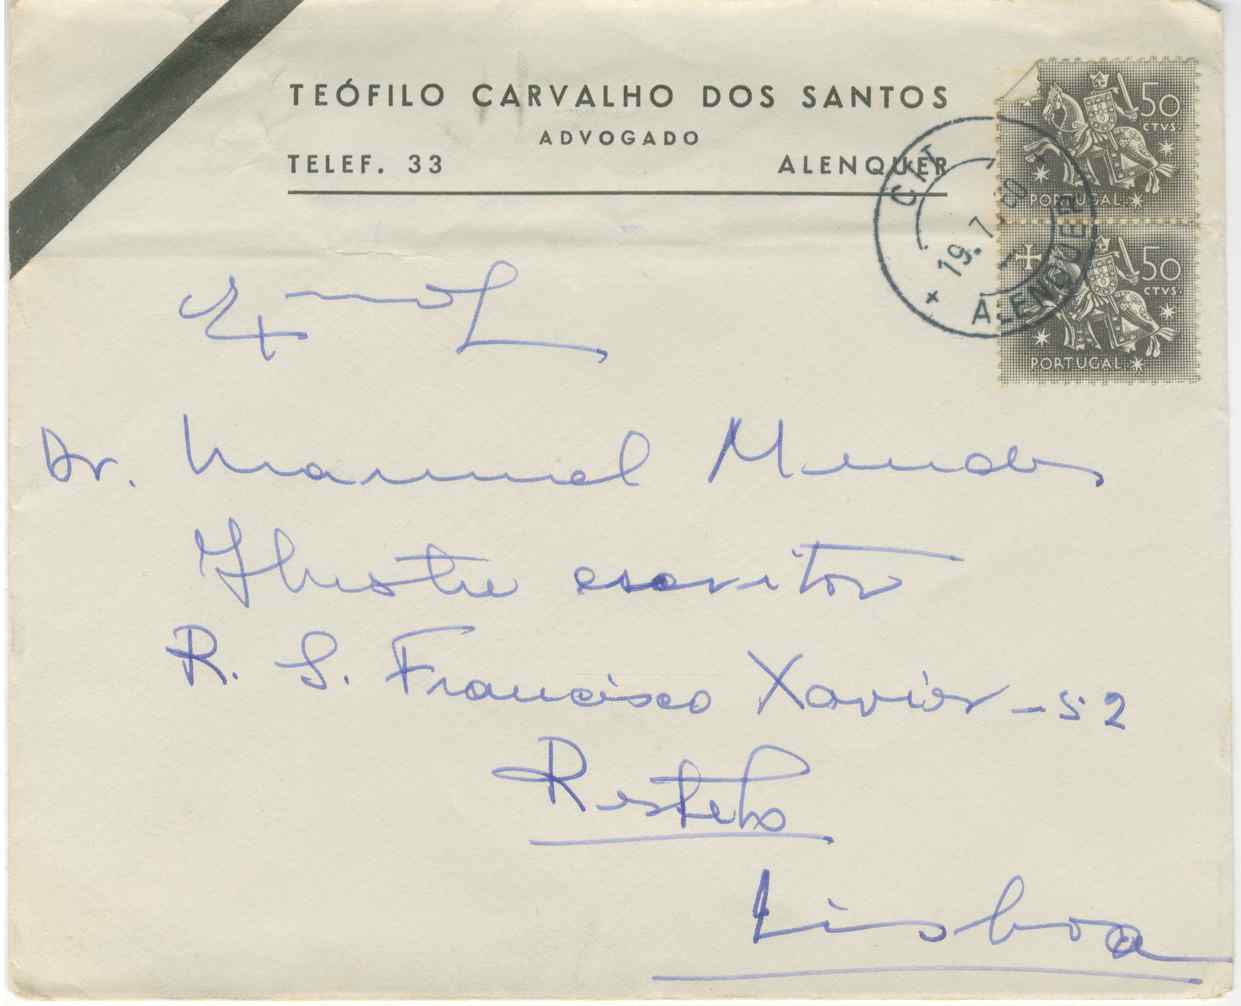 TEÓFILO CARVALHO DOS SANTOS
ADVOGADO
TELEF. 33 ALENQUER
50
CTVS.
PORTUGAL
50
CTVS.
PORTUGAL
CTT
19.7.60
ALENQUER
Exmo
Dr. Manuel Mendes
Ilustre escritor
R. S. Francisco Xavier - 52
Restelo
Lisboa